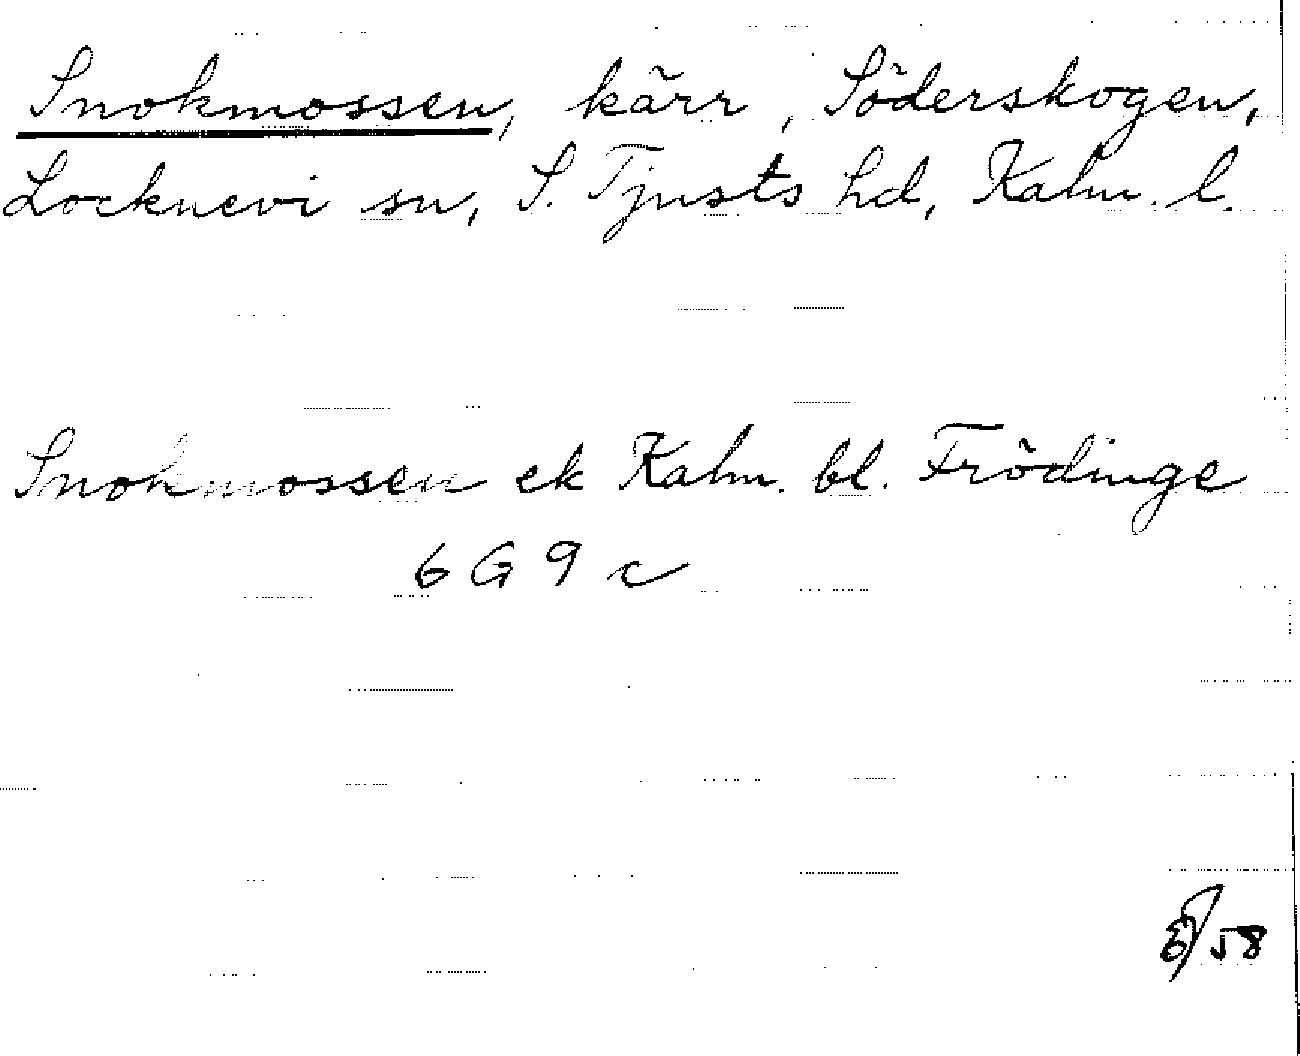 Snokmossen, kärr, Söderskogen,
Locknevi sn, S. Tjusts hd, Kalm. l.
Snokmossen ek Kalm. bl. Frödinge
6 G 9 c
58